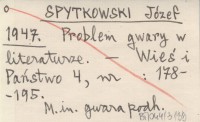 SPYTKOWSKI Józef
1947. Problem gwary w
literaturze. – Wieś i
Państwo 4, nr : 178-
-195.
M. in. gwara podh.